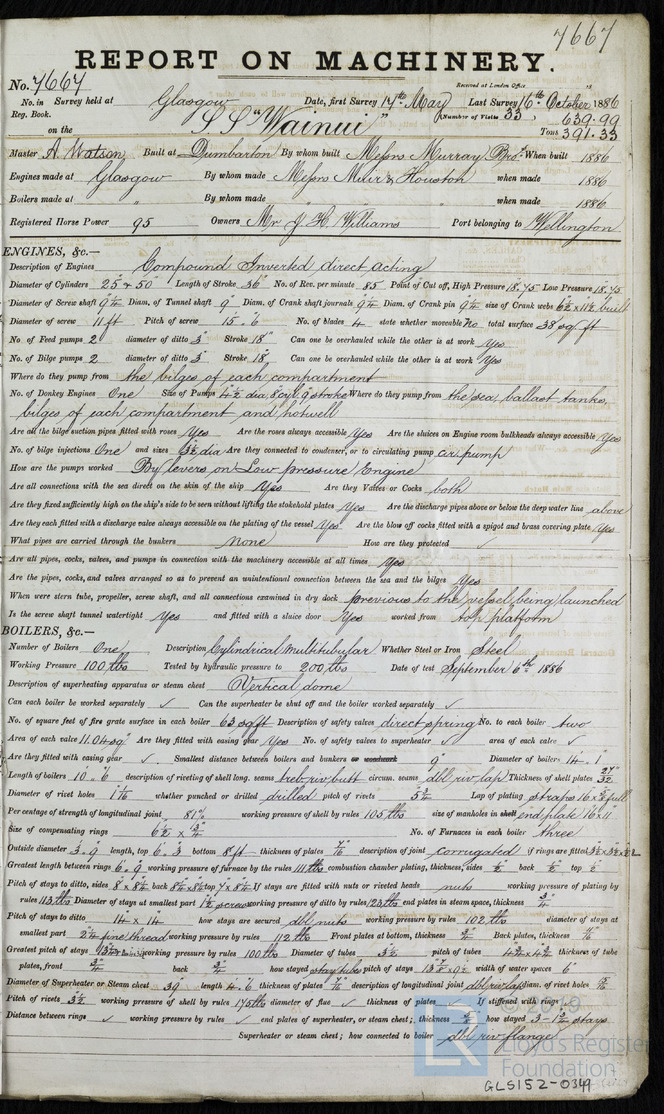 7667
REPORT ON MACHINERY.
No. 7667
Received at London Office 18
No. in Survey held at Glasgow Date, first Survey 14th May Last Survey 16th October 1886
Reg. Book.
(Number of Visits 33)
639.99
on the S.S "Wainui" Tons 391.33
Master A Watson Built at Dumbarton By whom built Messrs Murray Bros. When built 1886
Engines made at Glasgow By whom made Messrs Muir & Houston when made 1886
Boilers made at " By whom made " when made 1886
Registered Horse Power 95 Owners Mr J H Williams Port belonging to Wellington
ENGINES, &c.—
Description of Engines Compound Inverted direct acting
Diameter of Cylinders 25 & 50" Length of Stroke 36 No. of Rev. per minute 85 Point of Cut off, High Pressure 18.75 Low Pressure 18.75
Diameter of Screw shaft 9¼ Diam. of Tunnel shaft 9" Diam. of Crank shaft journals 9¼ Diam. of Crank pin 9¼ size of Crank webs 6½ x 11½ built
Diameter of screw 11 ft Pitch of screw 15.6 No. of blades 4 state whether moveable No total surface 38 sq ft
No. of Feed pumps 2 diameter of ditto 3" Stroke 18" Can one be overhauled while the other is at work Yes
No. of Bilge pumps 2 diameter of ditto 3" Stroke 18" Can one be overhauled while the other is at work Yes
Where do they pump from the bilges of each compartment
No. of Donkey Engines One Size of Pumps 4½ dia 8 cyl 9 stroke Where do they pump from the sea, ballast tanks,
bilges of each compartment and hotwell
Are all the bilge suction pipes fitted with roses Yes Are the roses always accessible Yes Are the sluices on Engine room bulkheads always accessible Yes
No. of bilge injections One and sizes 3½ dia Are they connected to condenser, or to circulating pump air pump
How are the pumps worked By levers on Low pressure Engine
Are all connections with the sea direct on the skin of the ship Yes Are they Valves or Cocks both
Are they fixed sufficiently high on the ship's side to be seen without lifting the stokehold plates Yes Are the discharge pipes above or below the deep water line above
Are they each fitted with a discharge valve always accessible on the plating of the vessel Yes Are the blow off cocks fitted with a spigot and brass covering plate Yes
What pipes are carried through the bunkers none How are they protected ✓
Are all pipes, cocks, valves, and pumps in connection with the machinery accessible at all times Yes
Are the pipes, cocks, and valves arranged so as to prevent an unintentional connection between the sea and the bilges Yes
When were stern tube, propeller, screw shaft, and all connections examined in dry dock previous to the vessel being launched
Is the screw shaft tunnel watertight Yes and fitted with a sluice door Yes worked from top platform
BOILERS, &c.—
Number of Boilers One Description Cylindrical Multitubular Whether Steel or Iron Steel
Working Pressure 100 lbs Tested by hydraulic pressure to 200 lbs Date of test September 6th 1886
Description of superheating apparatus or steam chest Vertical dome
Can each boiler be worked separately ✓ Can the superheater be shut off and the boiler worked separately ✓
No. of square feet of fire grate surface in each boiler 63 sq ft Description of safety valves direct spring No. to each boiler two
Area of each valve 11.04 sq" Are they fitted with easing gear Yes No. of safety valves to superheater ✓ area of each valve ✓
Are they fitted with easing gear ✓ Smallest distance between boilers and bunkers or woodwork 9" Diameter of boilers 14.1"
Length of boilers 10.6 description of riveting of shell long. seams treb riv butt circum. seams dbl riv lap Thickness of shell plates 27/32
Diameter of rivet holes 1 1/16 whether punched or drilled drilled pitch of rivets 5¾ Lap of plating straps 16 x ⅞ full
Percentage of strength of longitudinal joint 81% working pressure of shell by rules 105 lbs size of manholes in shell end plate 16 x 11"
Size of compensating rings 6½ x ¾ No. of Furnaces in each boiler three
Outside diameter 3.9 length, top 6.3 bottom 8 ft thickness of plates 7/16 description of joint corrugated if rings are fitted
Greatest length between rings 6.9 working pressure of furnace by the rules 111 lbs combustion chamber plating, thickness, sides ½ back ½ top ½
Pitch of stays to ditto, sides 8 x 8½ back 8½ x 8½ top 7 x 8½ If stays are fitted with nuts or riveted heads nuts working pressure of plating by
rules 113 lbs Diameter of stays at smallest part 1½ screw working pressure of ditto by rules 123 lbs end plates in steam space, thickness ¾
Pitch of stays to ditto 14 x 14 how stays are secured dbl nuts working pressure by rules 102 lbs diameter of stays at
smallest part 2¼ fine thread working pressure by rules 112 lbs Front plates at bottom, thickness ¾ Back plates, thickness 9/16
Greatest pitch of stays working pressure by rules 100 lbs Diameter of tubes 3½ pitch of tubes 4¾ x 4¾ thickness of tube
plates, front ¾ back ¾ how stayed stay tubes pitch of stays width of water spaces 6"
Diameter of Superheater or Steam chest 39 length 4.6 thickness of plates 7/16 description of longitudinal joint dbl riv lap diam. of rivet holes
Pitch of rivets 3½ working pressure of shell by rules 175 lbs diameter of flue ✓ thickness of plates ✓ If stiffened with rings ✓
Distance between rings ✓ working pressure by rules ✓ end plates of superheater, or steam chest; thickness how stayed 3-1¾ stays
Superheater or steam chest; how connected to boiler dbl riv flange
© 2019
LR
Lloyd's Register
Foundation
GLS152-0349